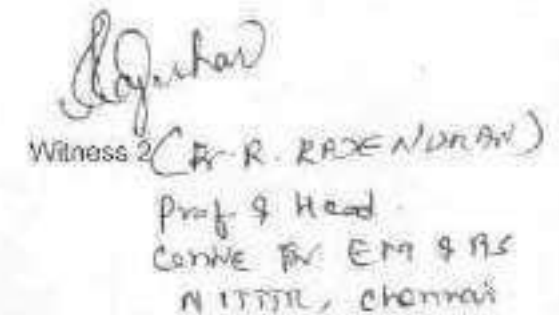 Witness 2 (Dr. R. RAJENDRAN)
Prof & Head
Centre for EM & RS
NITTTR, Chennai